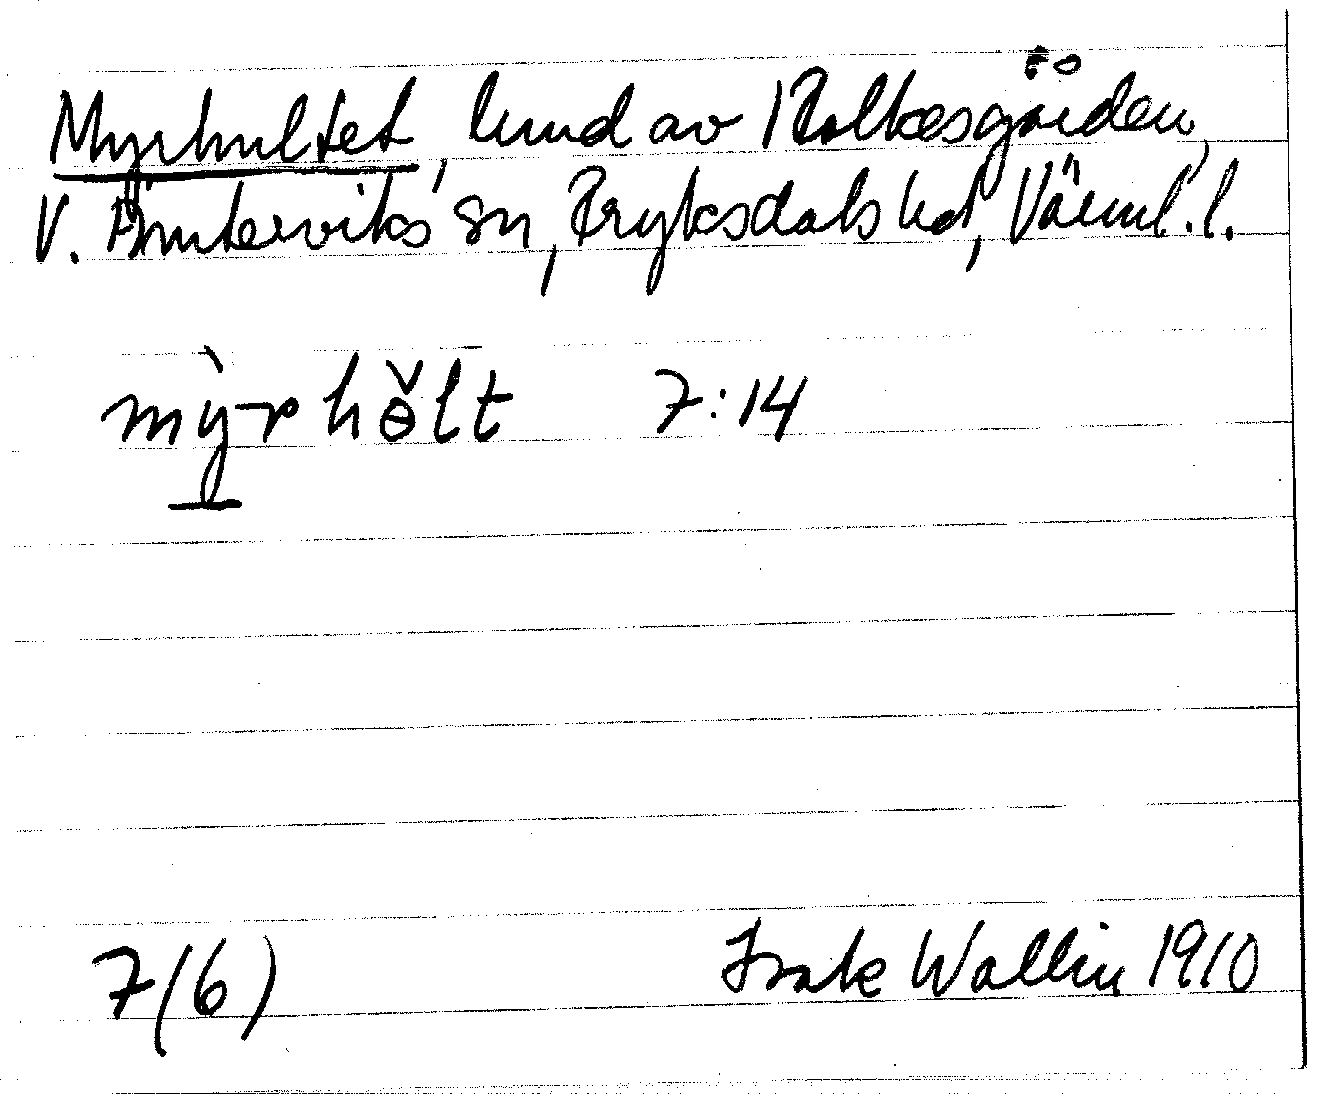 Myrhultet, lund av Rolkesgården,
V. Ämterviks sn, Fryksdals hd, Värml. l.
mỳrhɵ̆lt 7:14
7(6) Isak Wallin 1910